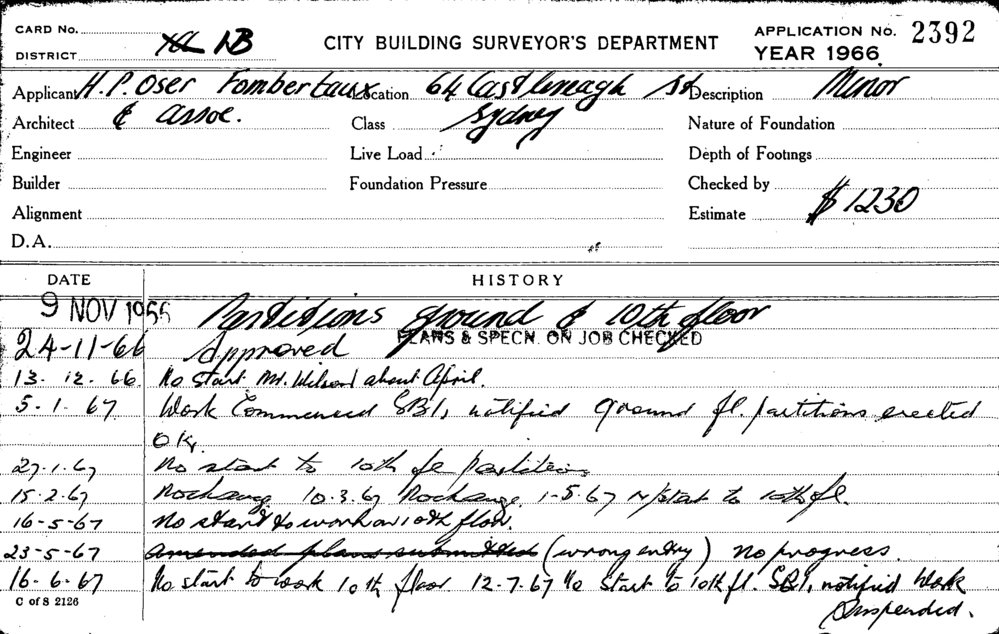 CARD No.
DISTRICT NB
CITY BUILDING SURVEYOR'S DEPARTMENT
APPLICATION No. 2392
YEAR 1966.
Applicant H.P. Oser Fombertaux Location 64 Castlereagh St Description Minor
Architect & assoc. Class Sydney Nature of Foundation
Engineer Live Load Depth of Footings
Builder Foundation Pressure Checked by
Alignment Estimate $1230
D.A.
DATE HISTORY
9 NOV 1966 Partitions ground & 10th floor
24-11-66 Approved PLANS & SPECN. ON JOB CHECKED
13. 12. 66 No start Mr. Wilson about April.
5. 1. 67 Work Commenced SB1, notified ground fl. partitions erected
OK.
27.1.67 No start to 10th fl partitions
15.2.67 No change 10.3.67 No change. 1-5.67 N/start to 10th fl.
16-5-67 No start to work on 10th floor.
23-5-67 amended plans submitted (wrong entry) no progress.
16. 6. 67 No start to work 10th floor. 12.7.67 No Start to 10th fl. SB1, notified Work
Suspended.
C of S 2126